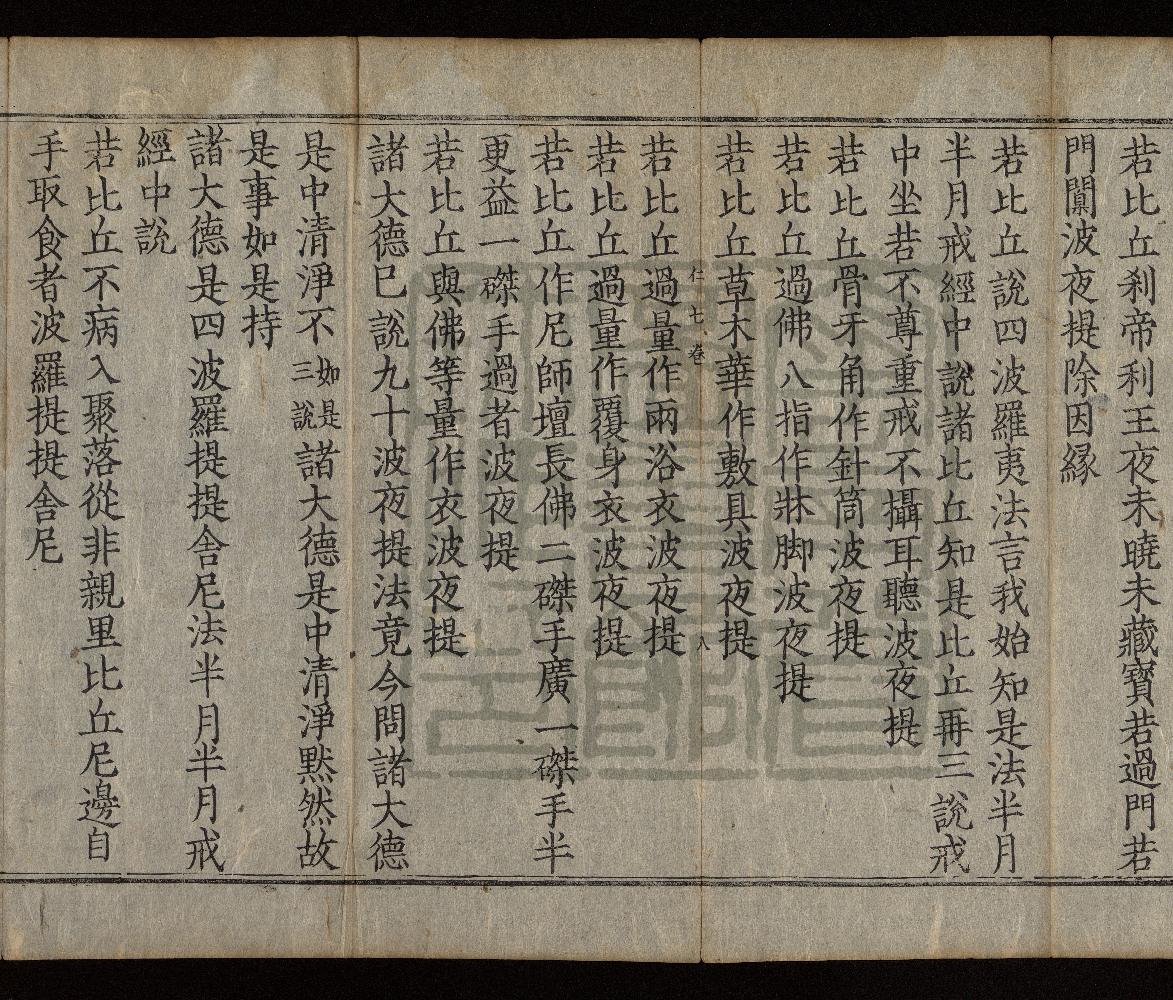 若比丘刹帝利王夜未曉未藏寶若過門若
門闑波夜提除因縁
若比丘說四波羅夷法言我始知是法半月
半月戒經中說諸比丘知是比丘再三說戒
中坐若不尊重戒不攝耳聽波夜提
若比丘骨牙角作針筒波夜提
若比丘過佛八指作牀脚波夜提
若比丘草木華作敷具波夜提
仁七卷 八
若比丘過量作兩浴衣波夜提
若比丘過量作覆身衣波夜提
若比丘作尼師壇長佛二磔手廣一磔手半
更益一磔手過者波夜提
若比丘與佛等量作衣波夜提
諸大德已說九十波夜提法竟今問諸大德
是中清淨不如是三說諸大德是中清淨默然故
是事如是持
諸大德是四波羅提提舍尼法半月半月戒
經中說
若比丘不病入聚落從非親里比丘尼邊自
手取食者波羅提提舍尼